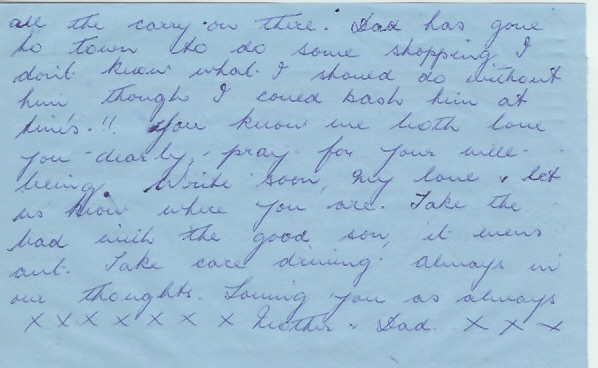 all the carry on there. Dad has gone
to town to do some shopping I
don't know what I should do without
him though I could bash him at
times.!! You know we both love
you dearly, pray for your well-
being. Write soon, my love & let
us know where you are. Take the
bad with the good son, it evens
out. Take care driving. always in
our thoughts. Loving you as always
x x x x x x x Mother & Dad. x x x